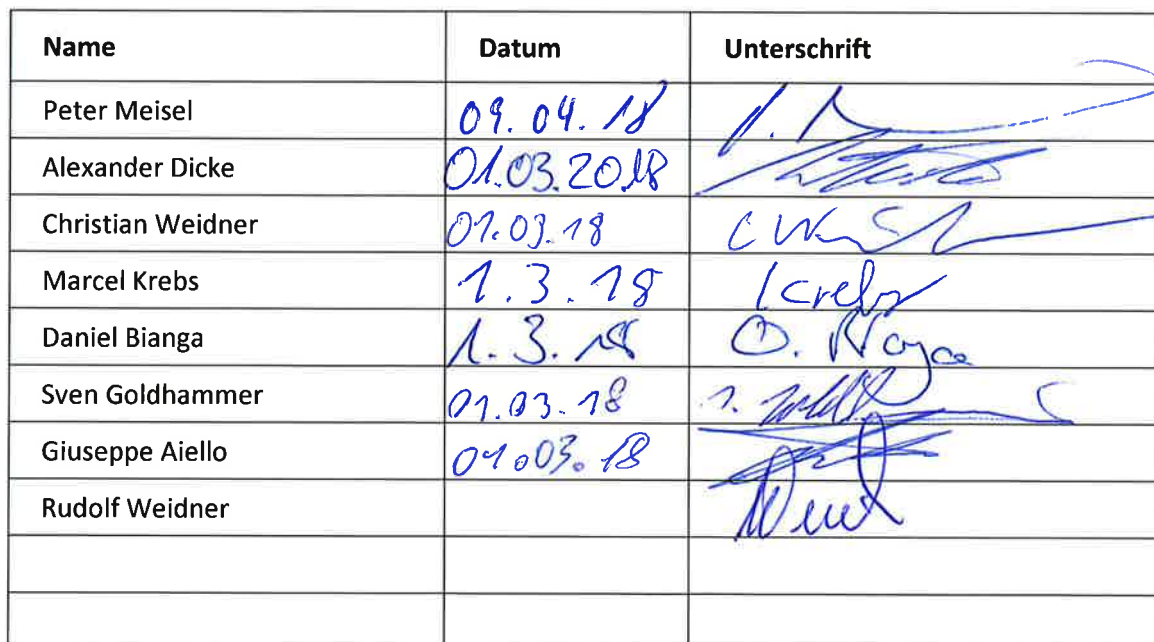 Name Datum Unterschrift
Peter Meisel 09.04.18
Alexander Dicke 01.03.2018
Christian Weidner 01.03.18
Marcel Krebs 1.3.18 Krebs
Daniel Bianga 1.3.18 D.
Sven Goldhammer 01.03.18
Giuseppe Aiello 01.03.18
Rudolf Weidner